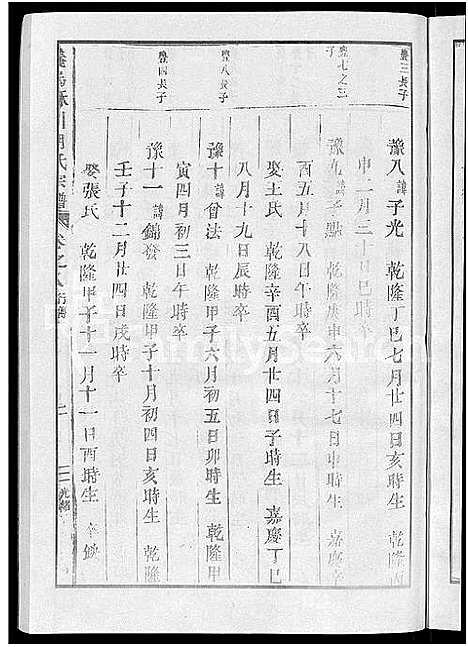 豫八諱子光 乾隆丁巳七月廿四日亥時生 乾隆丙
申二月三十日巳時卒
豫九諱子 乾隆庚申六月十七日申時生 嘉慶辛
酉五月十八日子時卒
娶王氏 乾隆辛酉五月廿四日子時生 嘉慶丁巳
八月十九日辰時卒
豫十諱曾法 乾隆甲子六月初五日卯時生 乾隆甲
寅四月初三日午時卒
豫十一諱錦發 乾隆甲子十月初四日亥時生 乾隆
壬子十二月廿四日戌時卒
娶張氏 乾隆甲子十一月十一日酉時生 卒缺
豊三長子
豊七之三子
豊八長子
豊四長子
氏宗譜 卷之八
光緒
FamilySearch